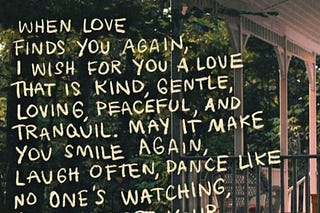 WHEN LOVE
FINDS YOU AGAIN,
I WISH FOR YOU A LOVE
THAT IS KIND, GENTLE,
LOVING, PEACEFUL, AND
TRANQUIL. MAY IT MAKE
YOU SMILE AGAIN,
LAUGH OFTEN, DANCE LIKE
NO ONE'S WATCHING,